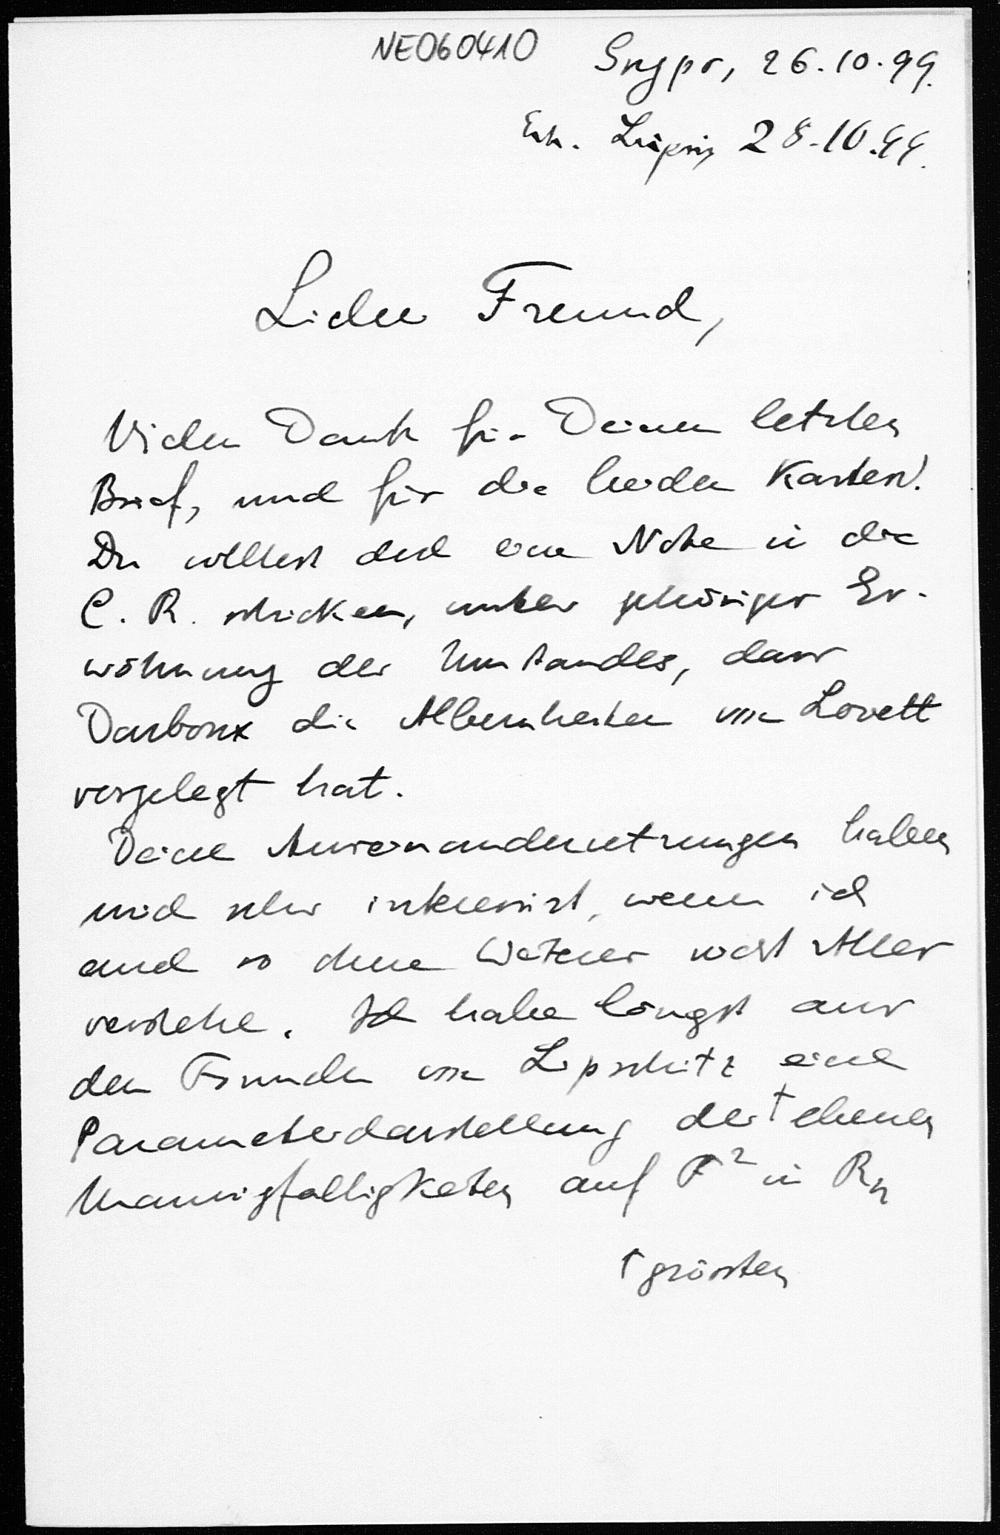 NE060410
Gryps, 26.10.99.
Erh. Leipzig 28.10.99.
Lieber Freund,
Vielen Dank für Deinen letzten
Brief, und für die beiden Karten!
Du solltest doch eine Note in die
C. R. schicken, unter gehöriger Er-
wähnung des Umstandes, dass
Darboux die Albernheiten von Lovett
vorgelegt hat.
Deine Auseinandersetzungen haben
mich sehr interessirt, wenn ich
auch so ohne Weiteres nicht Alles
verstehe. Ich habe längst aus
den Formeln von Lipschitz eine
Parameterdarstellung der ↑ ebenen
Mannigfaltigkeiten auf F² in Rₙ
↑ grössten